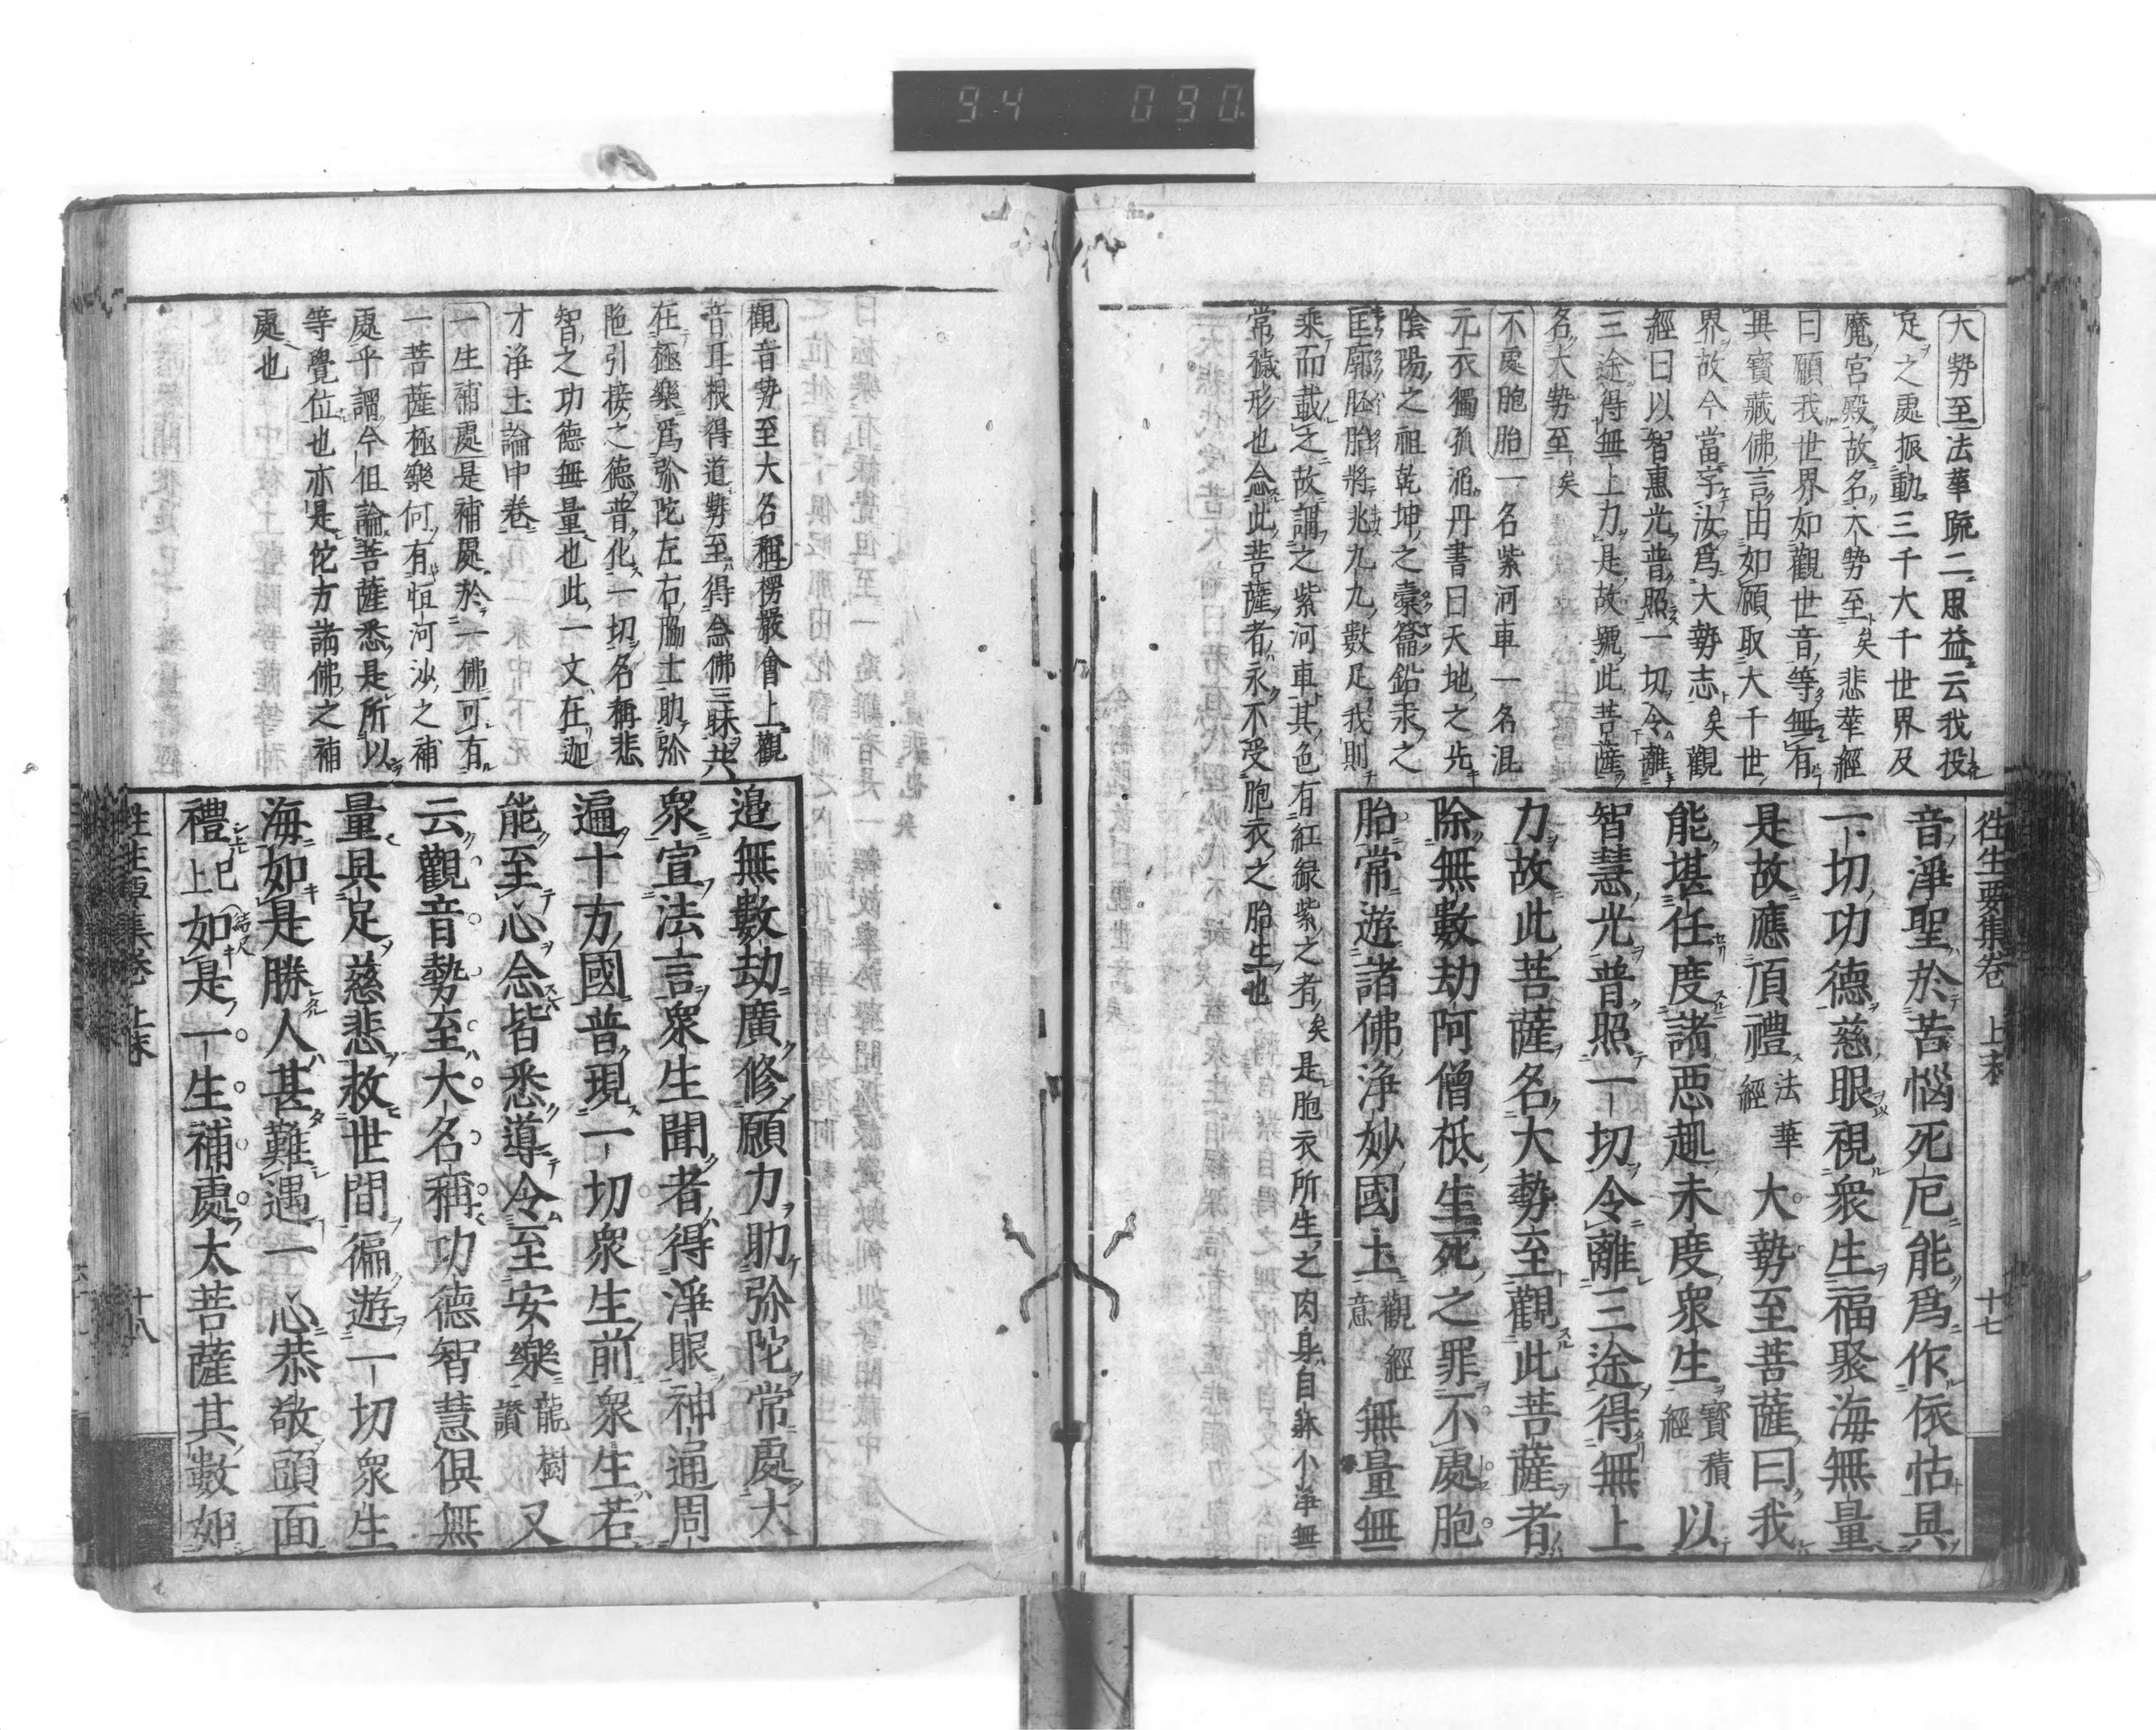 94 090
往生要集卷 上末 十七
大勢至法華疏二思益云我投
足之處振動三千大千世界及
魔宮殿故名大勢至矣悲華經
曰願我世界如觀世音等無有
異寶藏佛言由如願取大千世
界故今當字汝爲大勢志矣觀
經曰以智惠光普照一切令離
三途得無上力是故號此菩薩
名大勢至矣
不處胞胎一名紫河車一名混
元衣獨孤滔丹書曰天地之先
陰陽之祖乾坤之橐籥鉛汞之
匡廓胚胎將兆九九數足我則
乘而載之故謂之紫河車其色有紅緑紫之者矣是胞衣所生之肉身自躰小淨無
常穢形也念此菩薩者永不受胞衣之胎生也
音淨聖於苦惱死厄能爲作依怙具
一切功德慈眼視衆生福聚海無量
是故應頂禮法華經大勢至菩薩曰我
能堪任度諸惡趣未度衆生寶積經以
智慧光普照一切令離三途得無上
力故此菩薩名大勢至觀此菩薩者
除無數劫阿僧祇生死之罪不處胞
胎常遊諸佛淨妙國土觀經意無量無
觀音勢至大名稱楞嚴會上觀
音耳根得道勢至得念佛三昧共
在極樂爲弥陀左右脇士助弥
陀引接之德普化一切名稱悲
智之功德無量也此一文在迦
才淨土論中卷
一生補處是補處於一佛可有
一菩薩極樂何有恒河沙之補
處乎謂今但論菩薩悉是所以
等覺位也亦是佗方諸佛之補
處也
邉無數劫廣修願力助弥陀常處大
衆宣法言衆生聞者得淨眼神通周
遍十方國普現一切衆生前衆生若
能至心念皆悉導令至安樂龍樹讃又
云觀音勢至大名稱功德智慧俱無
量具足慈悲救世間徧遊一切衆生
海如是勝人甚難遇一心恭敬頭面
禮已上如是一生補處大菩薩其數如
往生要集卷 上末 十八